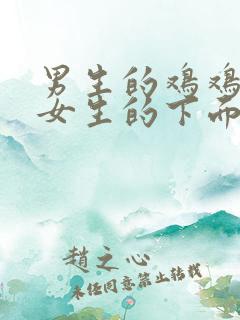 男生的鸡鸡
女生的下面
趙之心
未任同意禁止转载